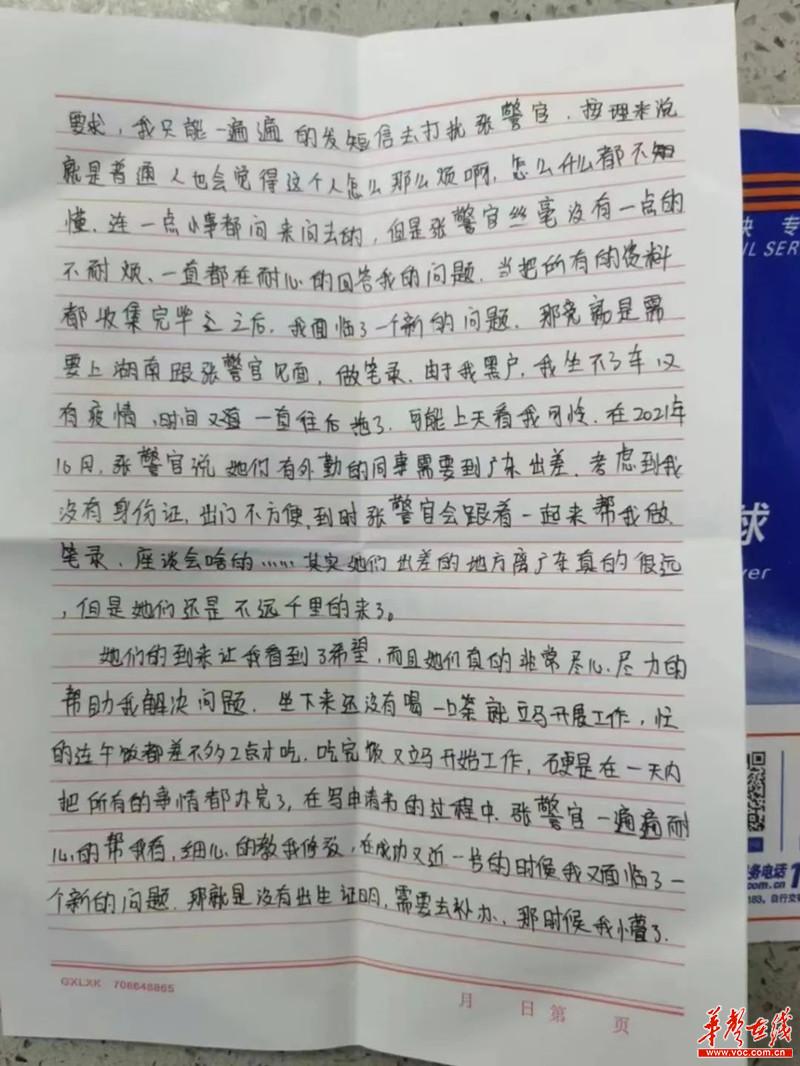 要求，我只能一遍遍的发短信去打扰张警官．按理来说
就是普通人也会觉得这个人怎么那么烦啊，怎么什么都不知
懂．连一点小事都问来问去的，但是张警官丝毫没有一点的
不耐烦、一直都在耐心的回答我的问题．当把所有的资料
都收集完毕之后，我面临了一个新的问题．那竟就是需
要上湖南跟张警官见面，做笔录．由于我黑户，我坐不了车又
有疫情，时间又一直往后拖了．可能上天看我可怜．在2021年
10月，张警官说她们有外勤的同事需要到广东出差．考虑到我
没有身份证，出门不方便，到时张警官会跟着一起来帮我做
笔录、座谈会啥的……其实她们出差的地方离广东真的很远
，但是她们还是不远千里的来了。
她们的到来让我看到了希望，而且她们真的非常尽心尽力的
帮助我解决问题．坐下来还没有喝一口茶就立马开展工作，忙
的连午饭都差不多2点才吃．吃完饭又立马开始工作，硬是在一天内
把所有的事情都办完了，在写申请书的过程中．张警官一遍遍耐
心的帮我看，细心的教我修改，在成功又近一步的时候我又面临了一
个新的问题．那就是没有出生证明，需要去补办、那时候我懵了．
GXLXK 708648865
月 日 第 页
快 专
IL SERV
球
ver
务电话 1
com.cn
183，自行交
华声在线
www.voc.com.cn